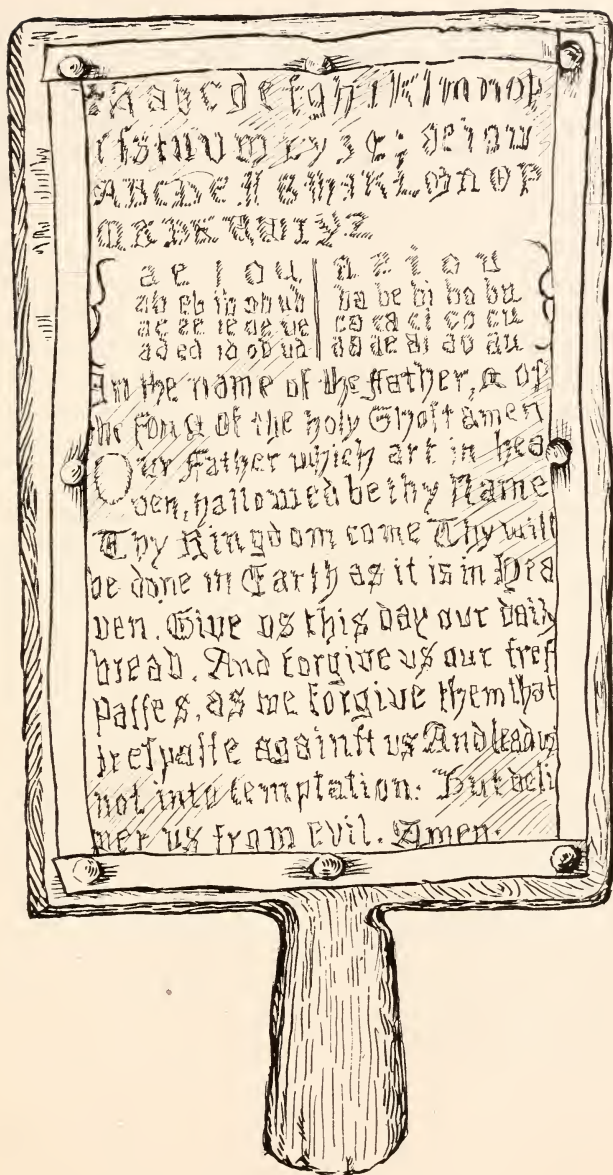 a b c d e f g h i k l m n o p
A B C D E
a e i o u | a e i o u
ab eb ib ob ub | ba be bi bo bu
ac ec ic oc uc | ca ce ci co cu
ad ed id od ud | da de di do du
In the name of the father, & of
the ſon & of the holy Ghoſt amen
Our Father which art in hea
ven, hallowed be thy Name
Thy Kingdom come Thy will
be done in Earth as it is in Hea
ven. Give us this day our daily
bread. And forgive us our treſ
paſſes, as we forgive them that
treſpaſſe againſt us And lead us
not into temptation: But deli
ver us from evil. Amen.